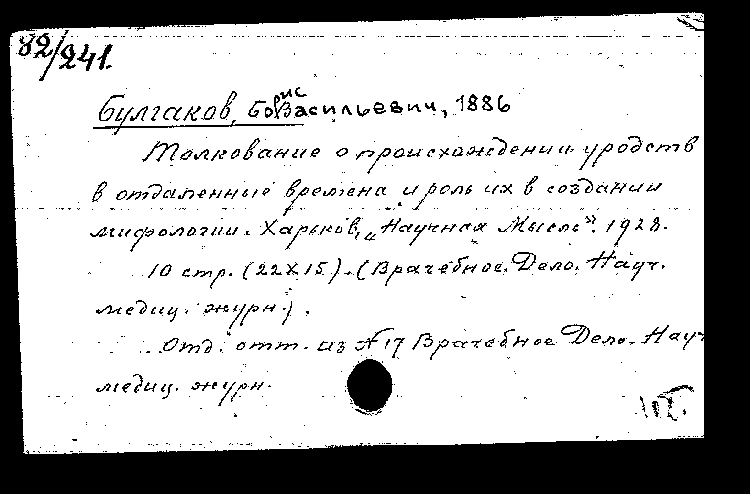 82/241.
Булгаков, Борис Васильевич, 1886
Толкование о происхождении уродств
в отдаленные времена и роль их в создании
мифологии. Харьков, „Научная Мысль“. 1928.
10 стр. (22х15). (Врачебное. Дело. Науч.
медиц. журн.).
Отд. отт. из №17 Врачебное Дело. Науч
медиц. журн.